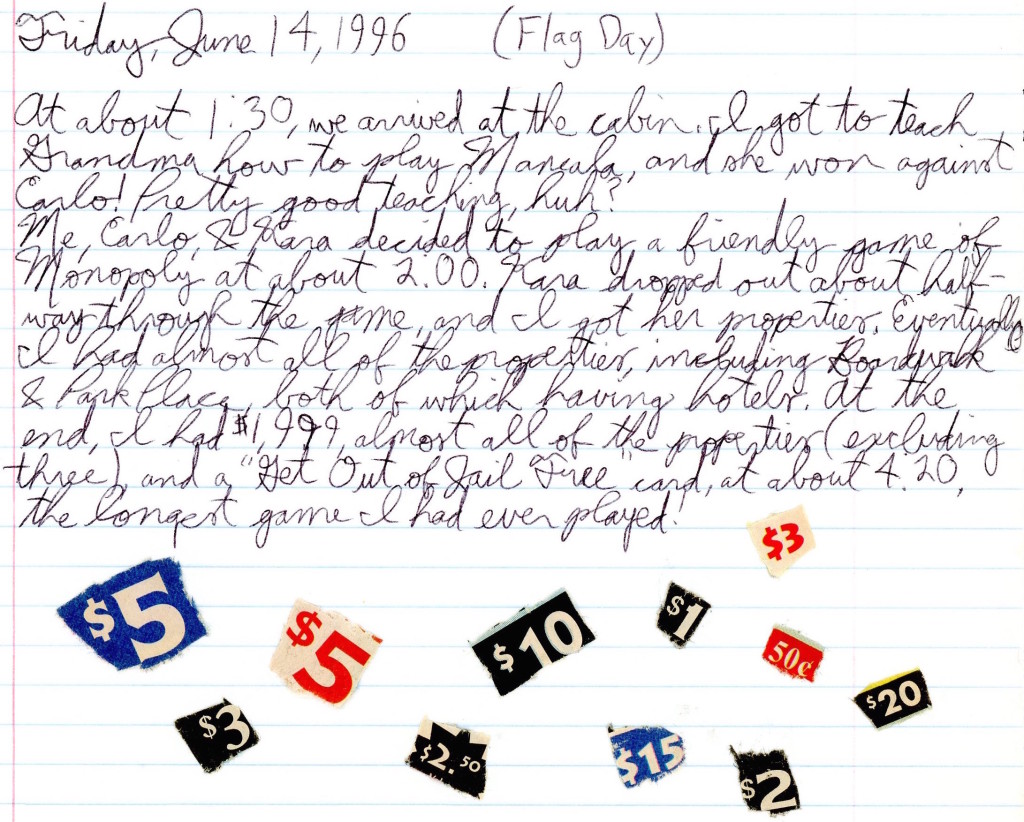 Friday, June 14, 1996 (Flag Day)
At about 1:30, we arrived at the cabin. I got to teach
Grandma how to play Mancala, and she won against
Carlo! Pretty good teaching, huh?
Me, Carlo, & Kara decided to play a friendly game of
Monopoly at about 2:00. Kara dropped out about half-
way through the game, and I got her properties. Eventually
I had almost all of the properties, including Boardwalk
& Park Place, both of which having hotels. At the
end, I had $1,999, almost all of the properties (excluding
three), and a "Get Out of Jail Free" card, at about 4:20,
the longest game I had ever played!
$3
$5
$5
$10
$1
50¢
$20
$3
$2.50
$15
$2